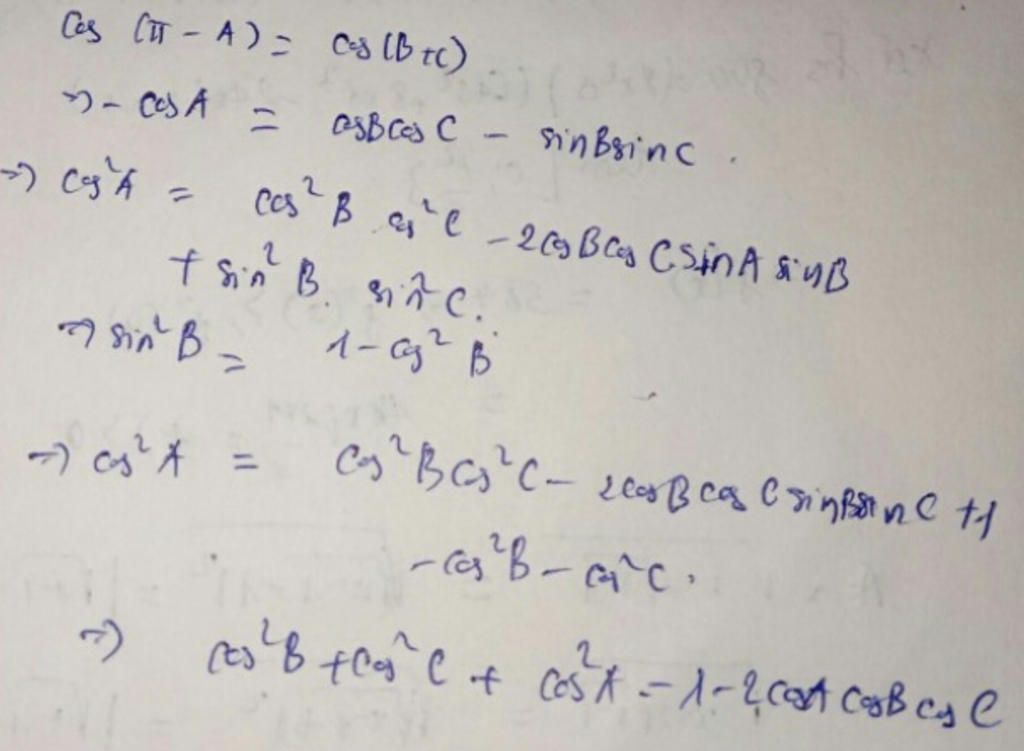 Cos (π - A) = Cos (B+C)
=> - cos A = cosBcos C - sinBsinc.
=> cos²A = cos² B cos² C - 2cosBcos CsinA sinB
+ sin² B. sin² C.
=> sin² B = 1 - cos² B
=> cos² A = cos² B cos² C - 2cosBcos C sinBsinC +1
- cos² B - cos² C.
=> cos² B + cos² C + cos² A = 1 - 2cosA cosBcos C